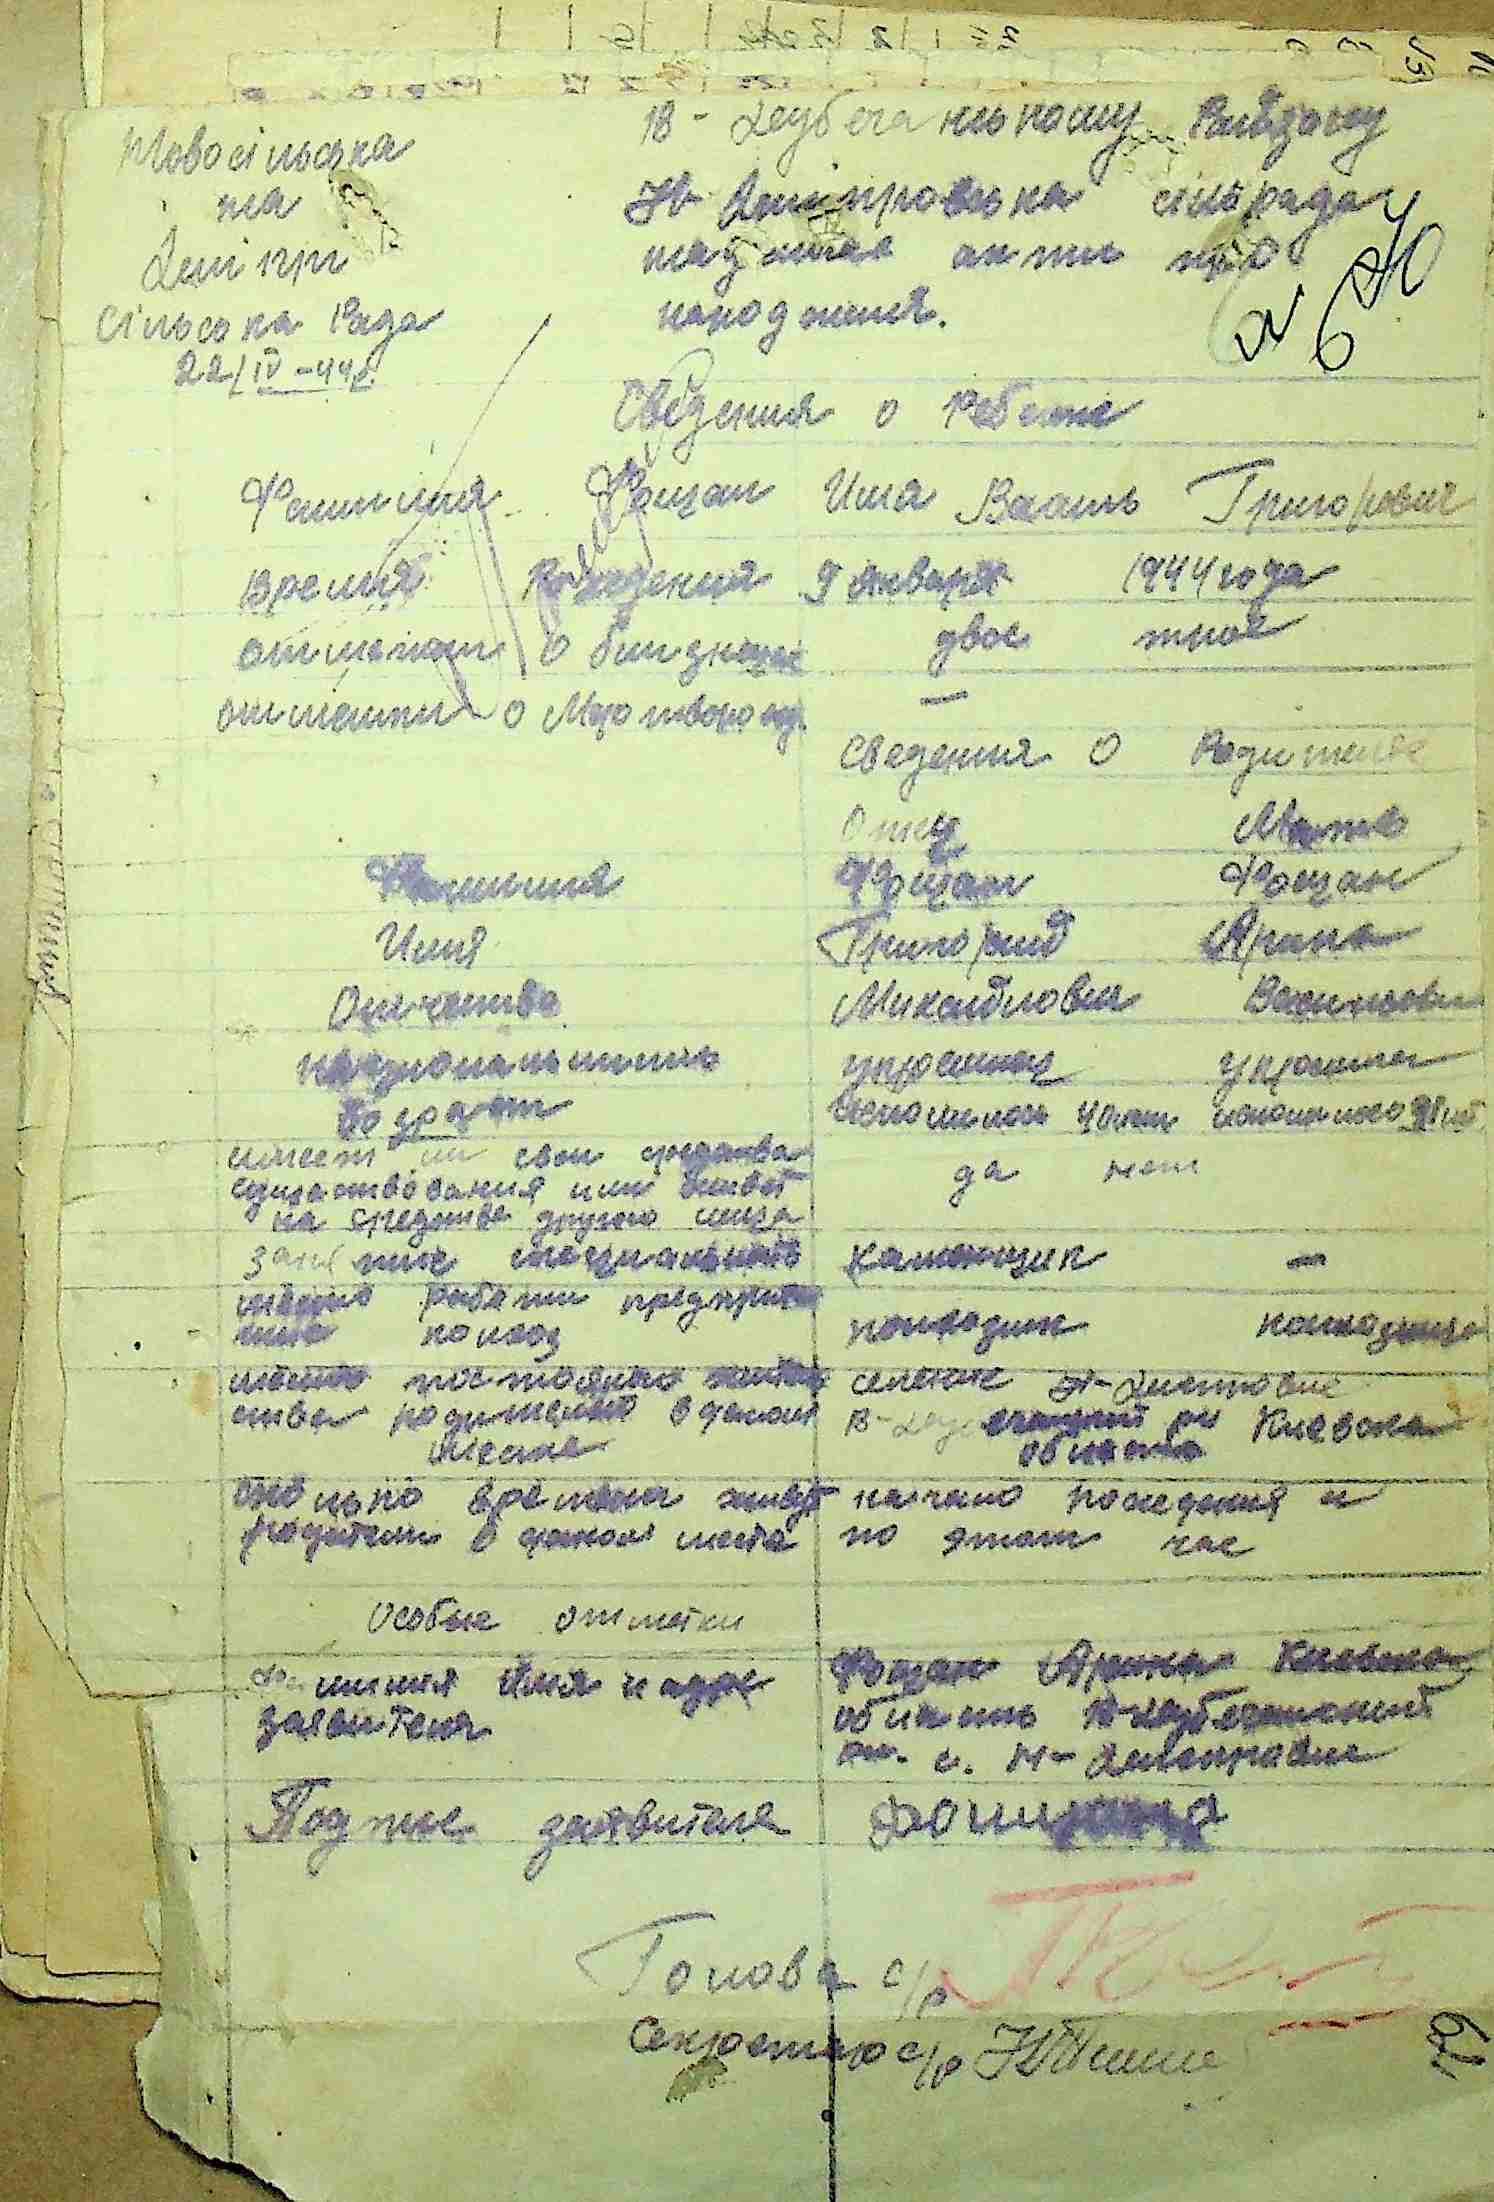 Новосільська
та
Дніпр
Сільська Рада
22/IV-44р.
В-Дубечанському Райзагсу
Н-Дніпровська сільрада
акти про
народження.
Сведения о Ребенке
Фамилия Фощан Имя Василь Григорович
Время Рождения 9 января 1944 года
отметки о близнецах двое
отметки о Мертворожд. —
Сведения о Родителях
Отец Мать
Фамилия Фощан Фощан
Имя Григорий Арина
Отечество Михайлович
национальность украинец украинка
Возраст исполнилось 40 лет исполнилось
имеет ли свои средства
существования или живет
на средства другого лица да нет
занятие специальность каменщик —
место работы предприятие
или колхоз колхозник колхозница
место постоянного жительства родителей в данном
месте
селение Н-Днепровка
В-Дубечанский р-н Киевска
область
сколько времени живут
родители в данном месте
начало рождения и
по этот час
Особые отметки
Фамилия Имя и адрес
заявителя
Фощан Арина Киевска
область В-Дубечанский
рн. с. Н-Днепровка
Подпис заявителя
Голова с/р
Секретарь с/р